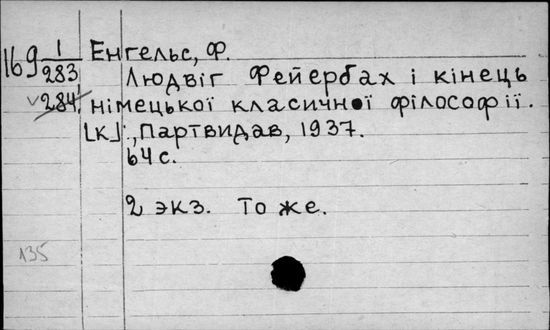 169 1/283 Енгельс, Ф.
Людвіг Фейербах і кінець
284 німецької класичної філософії.
[К]:, Партвидав, 1937.
64 с.
2 экз. То же.
135